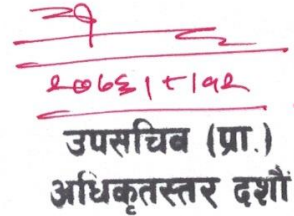 २०७६।८।१२
उपसचिव (प्रा.)
अधिकृतस्तर दशौं